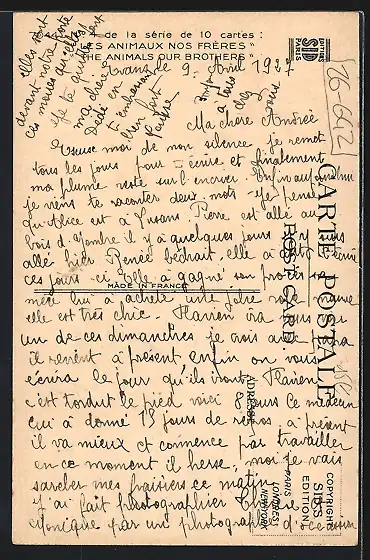 de la série de 10 cartes :
LES ANIMAUX NOS FRÈRES"
THE ANIMALS OUR BROTHERS"
EDITION
SID
PARIS
26-642
9. Avril 1927
Ma chère Andrée
Excuse moi de mon silence je remet
tous les jours pour t'écrire et finalement
ma plume reste sur l'encrier. Enfin aujourd'hui
je viens te raconter deux mots. Je pense
qu'Alice est à Pierre est allé au
bois d' il y a quelques jours j'y suis
allé hier Renée bédrait, elle a été
ces jours-ci elle a gagné son procès sa
mère lui a acheté une jolie robe
elle est très chic. Flavien ira vous
un de ces dimanches je crois que
il revient à présent enfin on vous
écrira le jour qu'ils iront. Flavien
c'est tordut le pied voici 8 jours le médecin
lui a donné 15 jours de repos, à présent
il va mieux et commence par travailler
en ce moment il herse, moi je vais
sarcler mes fraisiers ce matin
J'ai fait photographier
par un photographe d'occasion
elles sont
devant notre porte
ces
Je te quitte
ma chère
Dédé en
t'embrassant
bien fort
à tous
chez
MADE IN FRANCE
CARTE POSTALE
POST CARD
ADRESSE
PARIS
LONDRES
NEW-YORK
COPYRIGHT
SID'S
EDITION